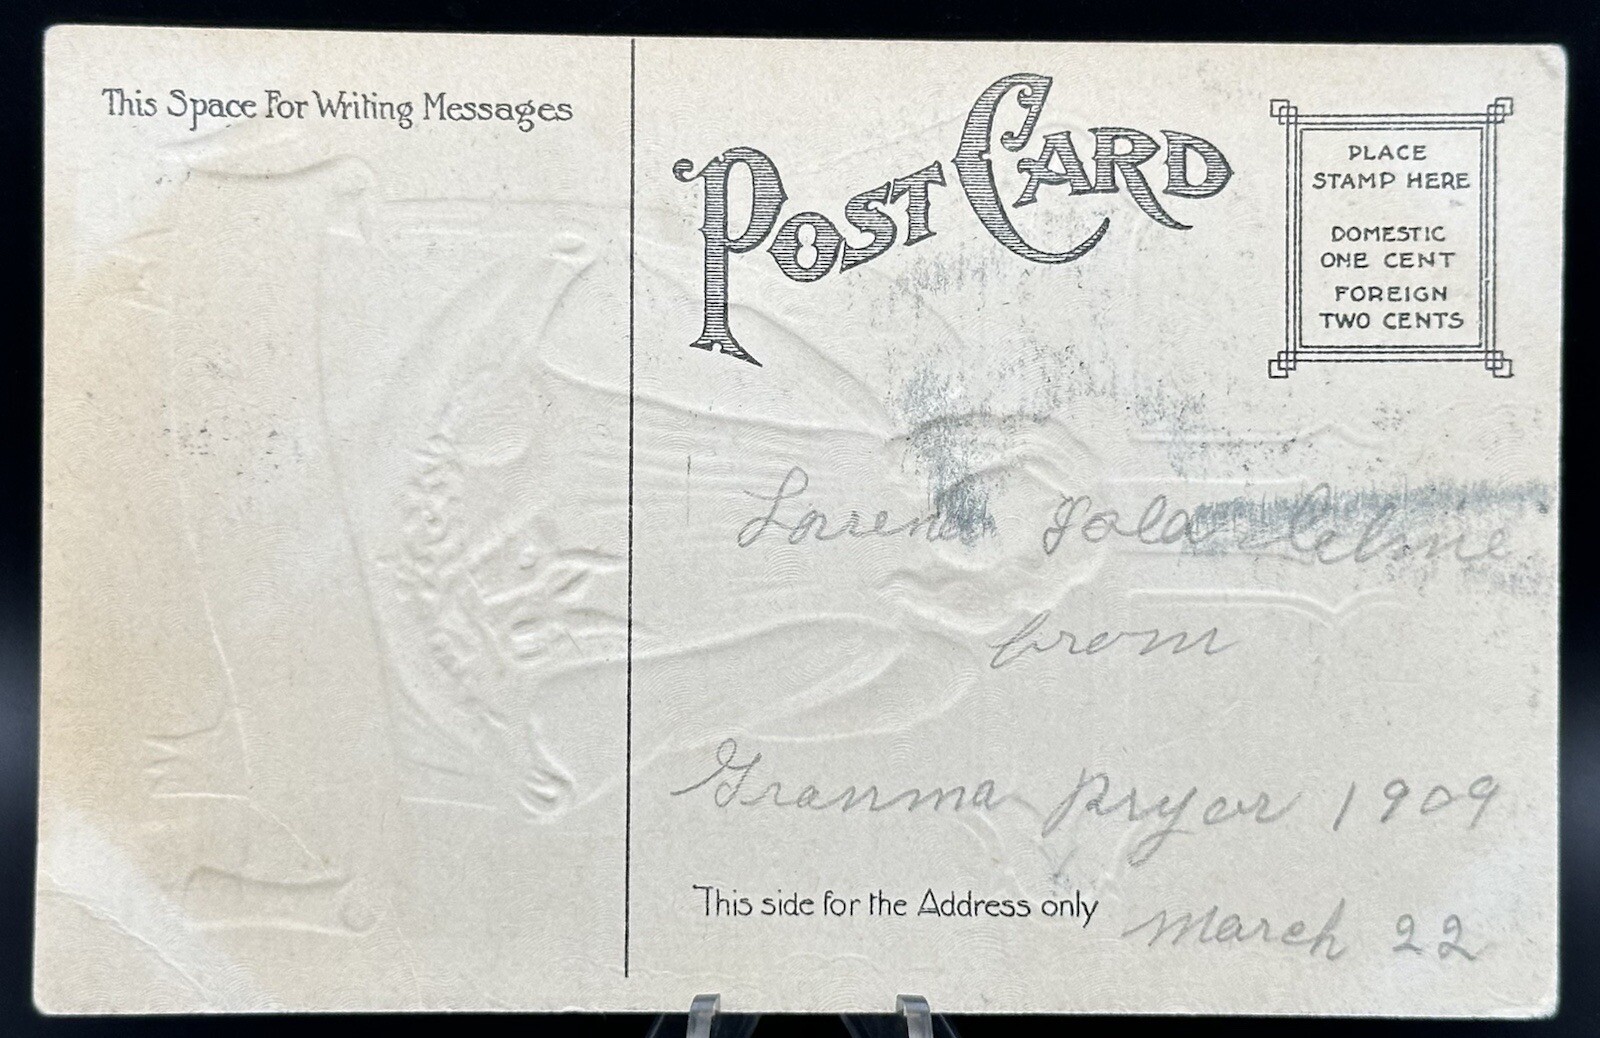 This Space For Writing Messages
POST CARD
PLACE
STAMP HERE
DOMESTIC
ONE CENT
FOREIGN
TWO CENTS
Lorena
from
Granma Pryor 1909
This side for the Address only
March 22